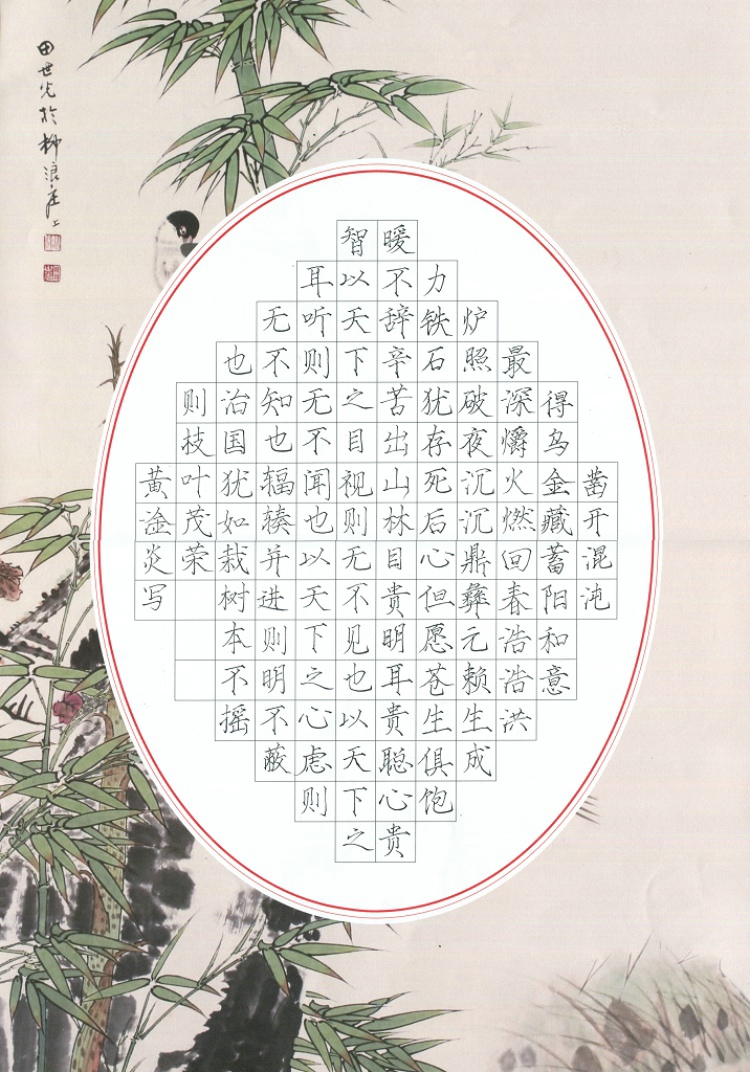 凿开混沌
得乌金藏蓄阳和意
最深爝火燃回春浩浩洪
炉照破夜沉沉鼎彝元赖生成
力铁石犹存死后心但愿苍生俱饱
暖不辞辛苦出山林目贵明耳贵聪心贵
智以天下之目视则无不见也以天下之
耳听则无不闻也以天下之心虑则
无不知也辐辏并进则明不蔽
也治国犹如栽树本不摇
则枝叶茂荣
黄淦炎写
田世光於柳浪庄上